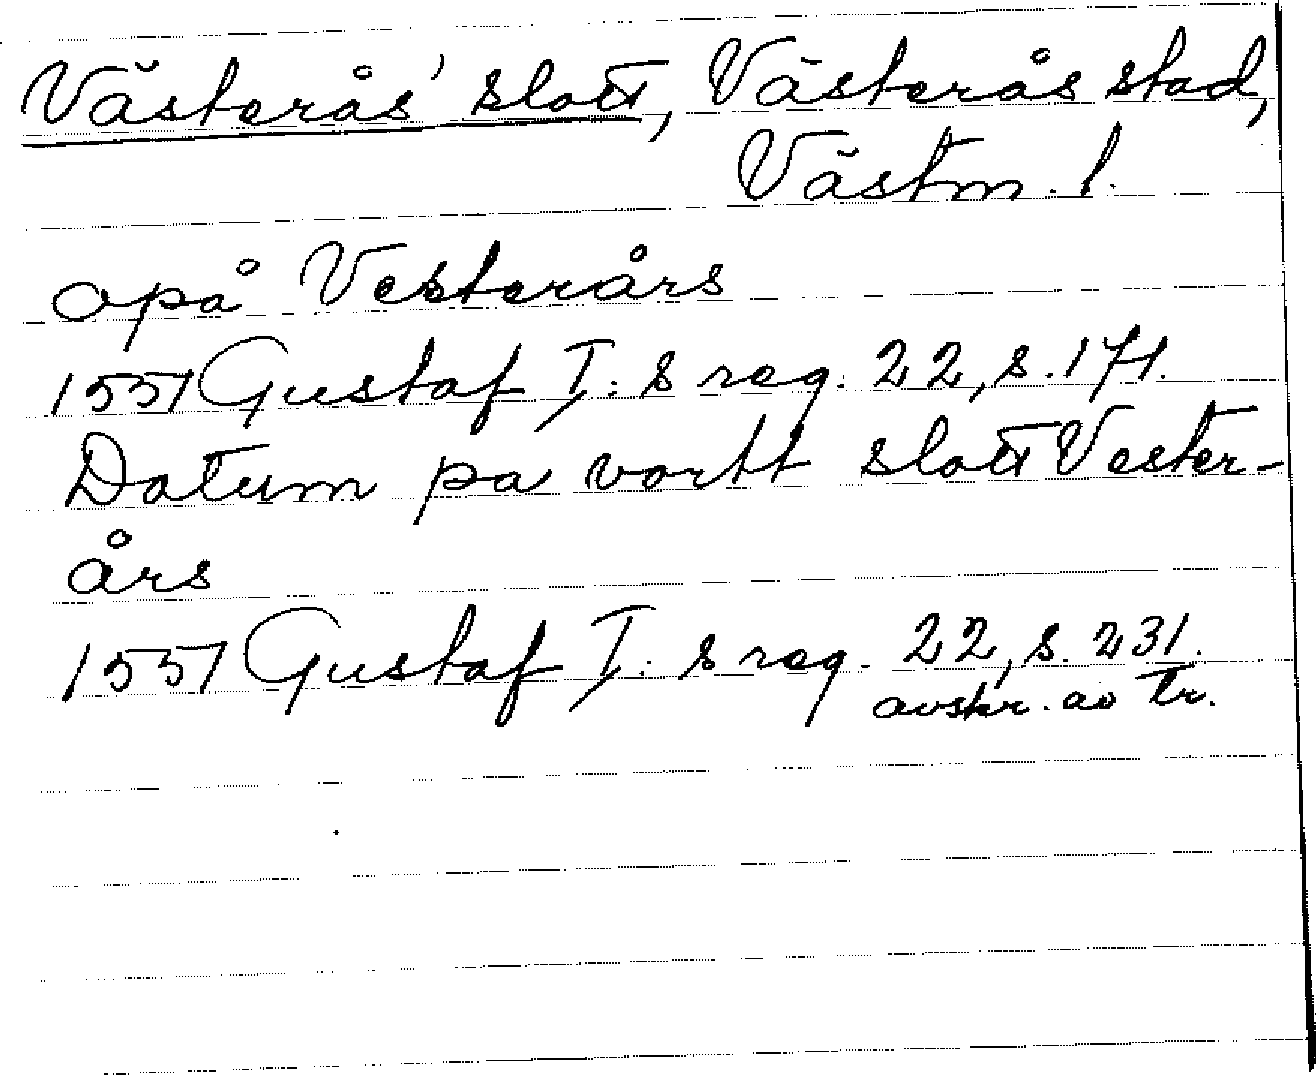 Västerås' slott, Västerås stad,
Västm. l.
opå Vesterårs
1551 Gustaf I: s reg. 22, s. 171.
Datum pa vortt slott Vester-
års
1551 Gustaf I: s reg. 22, s. 231.
avskr. av tr.